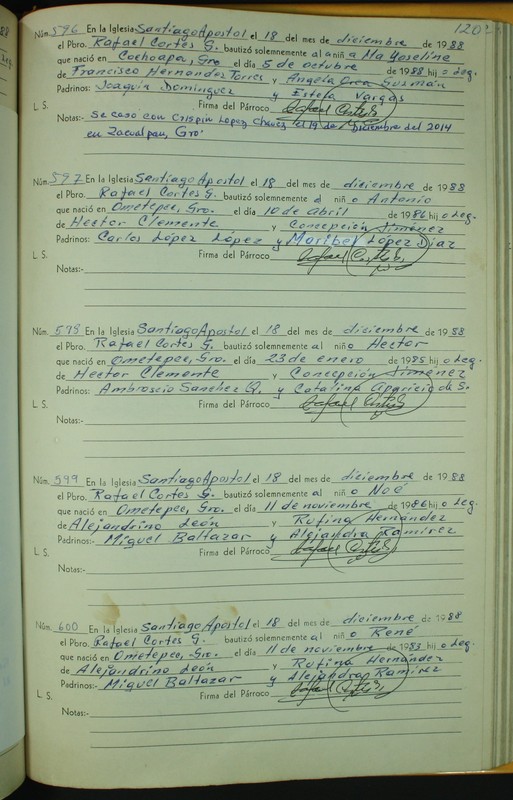 120
Núm. 596 En la Iglesia Santiago Apostol el 18 del mes de diciembre de 1988
el Pbro. Rafael Cortés G. bautizó solemnemente al a niñ a Ma Yoseline
que nació en Cochoapa, Gro el día 5 de octubre de 1988 hij o Leg.
de Francisco Hernandez Torres y Angela Orea Guzmán
Padrinos: Joaquin Dominguez y Estefa Vargas
L S. Firma del Párroco Rafael Cortés G.
Notas:- Se caso con Crispin Lopez Chavez el 19 de Diciembre del 2014
en Zacualpan, Gro.
Núm. 597 En la Iglesia Santiago Apostol el 18 del mes de diciembre de 1988
el Pbro. Rafael Cortés G. bautizó solemnemente al niñ o Antonio
que nació en Ometepec, Gro. el día 10 de abril de 1986 hij o Leg.
de Hector Clemente y Concepción Jiménez
Padrinos: Carlos López López y Maribel López Diaz
L S. Firma del Párroco Rafael Cortés G.
Notas:-
Núm. 598 En la Iglesia Santiago Apostol el 18 del mes de diciembre de 1988
el Pbro. Rafael Cortés G. bautizó solemnemente al niñ o Hector
que nació en Ometepec, Gro. el día 23 de enero de 1985 hij o Leg.
de Hector Clemente y Concepción Jiménez
Padrinos: Ambroscio Sanchez G. y Catalina Aparicio de S.
L S. Firma del Párroco Rafael Cortés G.
Notas:-
Núm. 599 En la Iglesia Santiago Apostol el 18 del mes de diciembre de 1988
el Pbro. Rafael Cortés G. bautizó solemnemente al niñ o Noé
que nació en Ometepec, Gro. el día 11 de noviembre de 1986 hij o Leg.
de Alejandrino León y Rufina Hernández
Padrinos:- Miguel Baltazar y Alejandra Ramirez
L S. Firma del Párroco Rafael Cortés G.
Notas:-
Núm. 600 En la Iglesia Santiago Apostol el 18 del mes de diciembre de 1988
el Pbro. Rafael Cortés G. bautizó solemnemente al niñ o René
que nació en Ometepec, Gro. el día 11 de noviembre de 1983 hij o Leg.
de Alejandrino León y Rufina Hernández
Padrinos:- Miguel Baltazar y Alejandra Ramirez
L S. Firma del Párroco Rafael Cortés G.
Notas:-